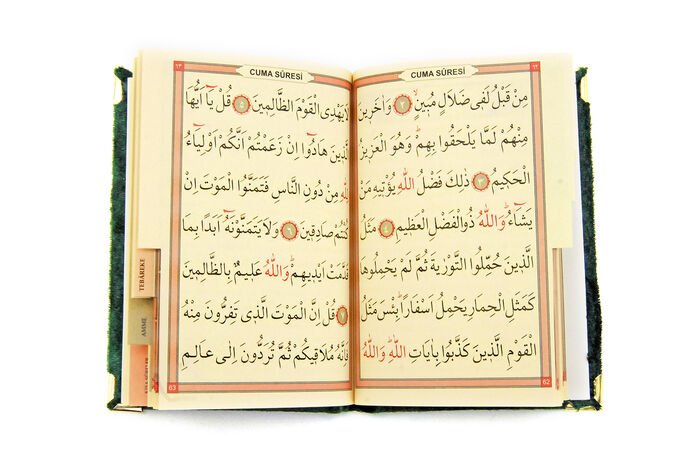 ٦٢
CUMA SÛRESİ
مِنْ قَبْلُ لَفٖى ضَلَالٍ مُبٖينٍۙ ﴿٢﴾ وَاٰخَرٖينَ
مِنْهُمْ لَمَّا يَلْحَقُوا بِهِمْؕ وَهُوَ الْعَزٖيزُ
الْحَكٖيمُ ﴿٣﴾ ذٰلِكَ فَضْلُ اللّٰهِ يُؤْتٖيهِ مَنْ
يَشَٓاءُؕ وَاللّٰهُ ذُوالْفَضْلِ الْعَظٖيمِ ﴿٤﴾ مَثَلُ
الَّذٖينَ حُمِّلُوا التَّوْرٰيةَ ثُمَّ لَمْ يَحْمِلُوهَا
كَمَثَلِ الْحِمَارِ يَحْمِلُ اَسْفَارًاؕ بِئْسَ مَثَلُ
الْقَوْمِ الَّذٖينَ كَذَّبُوا بِاٰيَاتِ اللّٰهِؕ وَاللّٰهُ
62
٦٣
CUMA SÛRESİ
لَايَهْدِى الْقَوْمَ الظَّالِمٖينَ ﴿٥﴾ قُلْ يَٓا اَيُّهَا
الَّذٖينَ هَادُٓوا اِنْ زَعَمْتُمْ اَنَّكُمْ اَوْلِيَٓاءُ
لِلّٰهِ مِنْ دُونِ النَّاسِ فَتَمَنَّوُا الْمَوْتَ اِنْ
كُنْتُمْ صَادِقٖينَ ﴿٦﴾ وَلَا يَتَمَنَّوْنَهُٓ اَبَدًا بِمَا
قَدَّمَتْ اَيْدٖيهِمْؕ وَاللّٰهُ عَلٖيمٌ بِالظَّالِمٖينَ
﴿٧﴾ قُلْ اِنَّ الْمَوْتَ الَّذٖى تَفِرُّونَ مِنْهُ
فَاِنَّهُ مُلَاقٖيكُمْ ثُمَّ تُرَدُّونَ اِلٰى عَالِمِ
63
TEBÂREKE
AMME